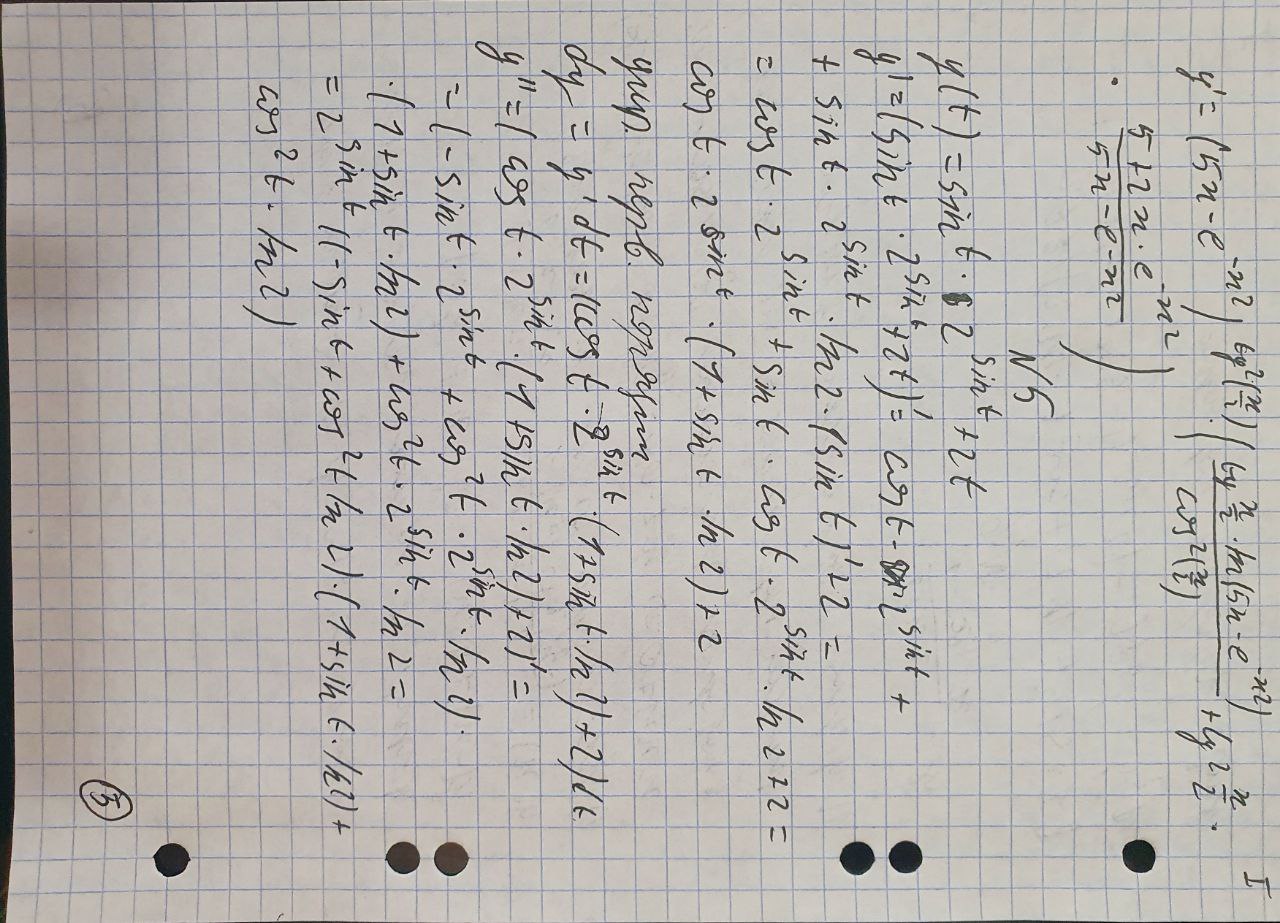 I
y' = (5x-e^{-x^2})^{tg^2(x/2)} · ( \frac{tg \frac{x}{2} · ln(5x-e^{-x^2})}{cos^2(\frac{x}{2})} + tg^2 \frac{x}{2} ·
· \frac{5+2x·e^{-x^2}}{5x-e-x^2} )
N5
y(t) = sin t · 2^{sin t} + 2t
y' = (sin t · 2^{sin t} + 2t)' = cos t · 2^{sin t} +
+ sin t · 2^{sin t} · ln2 · (sin t)' + 2 =
= cos t · 2^{sin t} + sin t · cos t · 2^{sin t} · ln 2 + 2 =
cos t · 2^{sin t} · (1+sin t · ln 2) + 2
перв. порядка
dy = y'dt = (cos t · 2^{sin t} · (1+sin t · ln 2) + 2)dt
y'' = ( cos t · 2^{sin t} · (1+sin t · ln 2) + 2)' =
= (-sin t · 2^{sin t} + cos^2 t · 2^{sin t} · ln 2) ·
· (1+sin t · ln 2) + cos^2 t · 2^{sin t} · ln 2 =
= 2^{sin t} ((-sin t + cos^2 t ln 2) · (1+sin t · ln2) +
cos^2 t · ln 2)
5